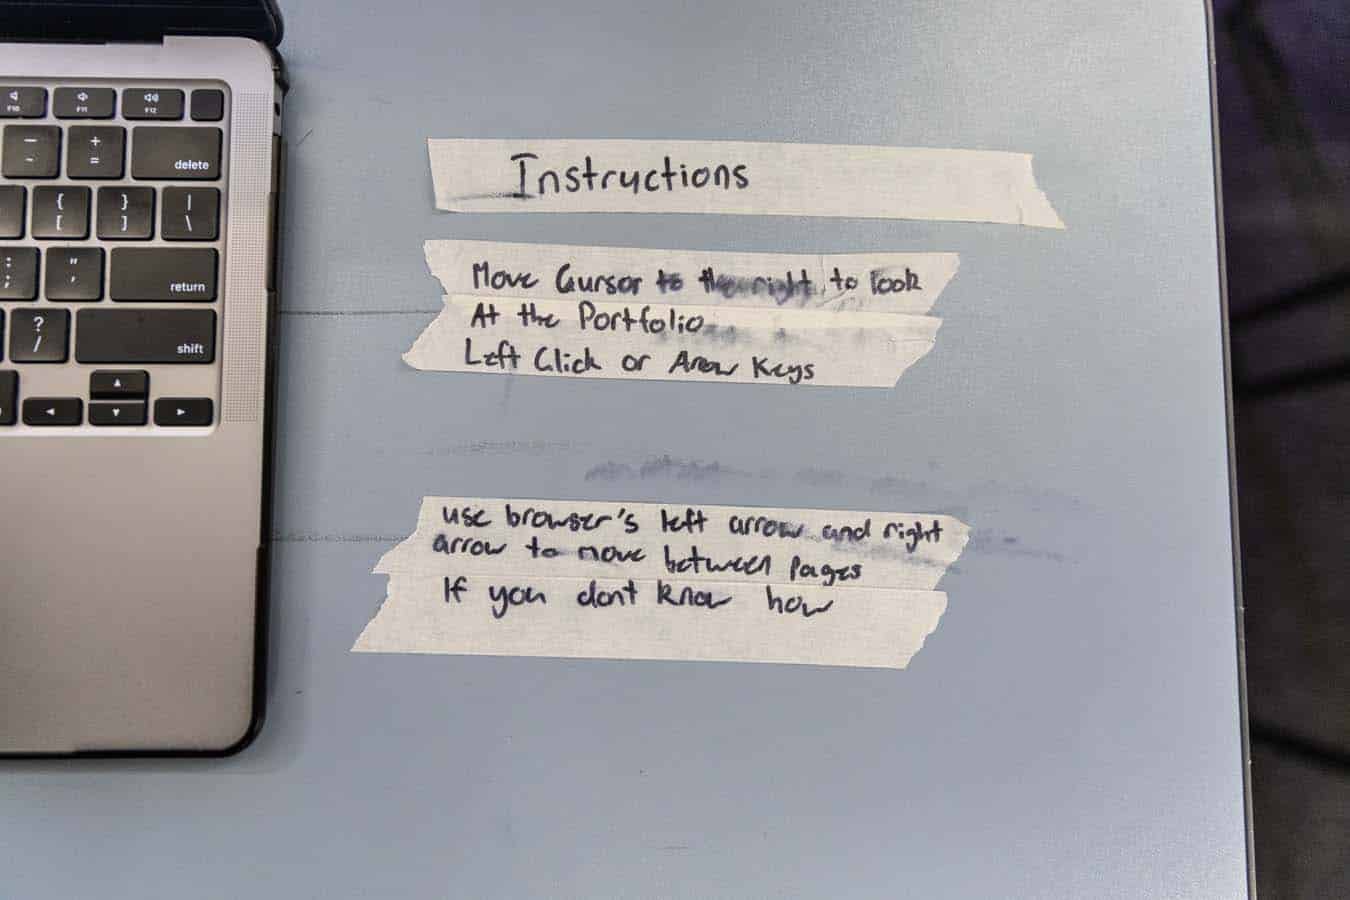 F10 F11 F12
— +
- =
delete
{ }
[ ] \
: "
; ,
return
?
/
shift
Instructions
Move Cursor to the right to look
At the Portfolio
Left Click or Arrow Keys
use browser's left arrow and right
arrow to move between pages
If you dont know how